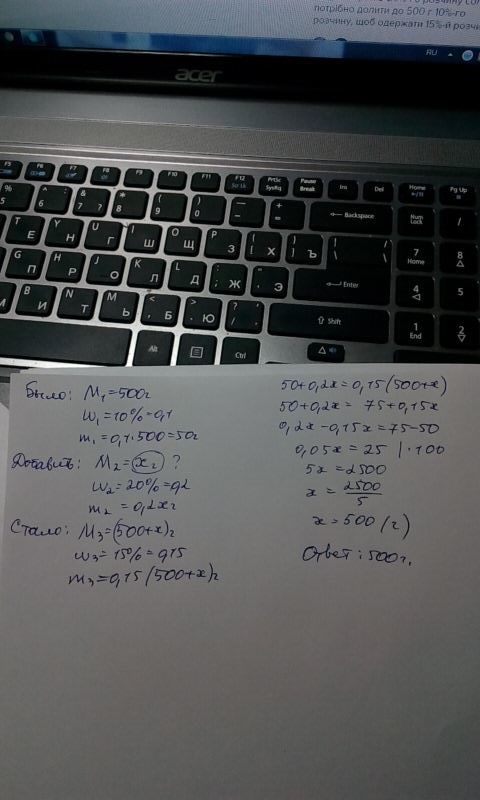 потрібно долити до 500 г 10%-го
розчину, щоб одержати 15%-й розчи
RU
acer
F5 F6 F7 F8 F9 F10 F11 F12 PrtSc SysRq Pause Break Ins Del Home Pg Up
% 5 ^ : 6 & ? 7 * 8 ( 9 ) 0 _ - + = Backspace Num Lock /
T Е Y Н U Г I Ш O Щ P З { [ Х } ] Ъ | \ / 7 Home 8
G П H Р J О K Л L Д : ; Ж " ' Э Enter 4 5
М B И N Т M Ь < , Б > . Ю ? / Shift 1 End 2
Alt Ctrl
Было: M₁=500г
W₁=10%=0,1
m₁=0,1·500=50г
Добавить: M₂=xг ?
W₂=20%=0,2
m₂=0,2xг
Стало: M₃=(500+x)г
W₃=15%=0,15
m₃=0,15(500+x)г
50+0,2x=0,15(500+x)
50+0,2x=75+0,15x
0,2x-0,15x=75-50
0,05x=25 |·100
5x=2500
x=2500/5
x=500(г)
Ответ: 500г.